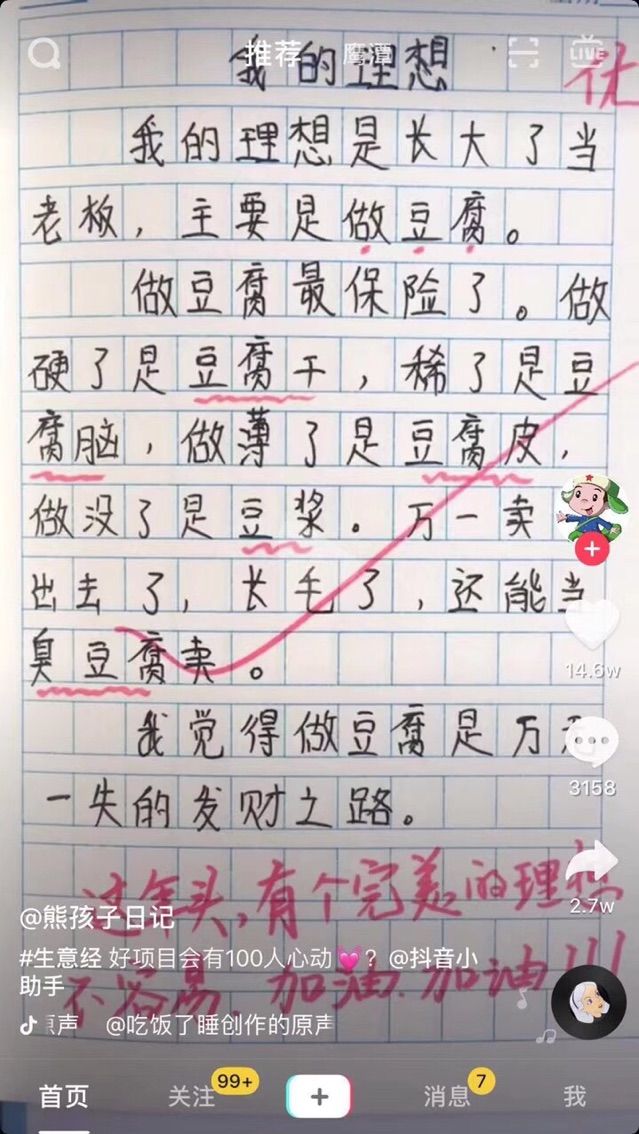 推荐 鹰潭
LIVE
我的理想
优
我的理想是长大了当
老板，主要是做豆腐。
做豆腐最保险了。做
硬了是豆腐干，稀了是豆
腐脑，做薄了是豆腐皮，
做没了是豆浆。万一卖
出去了，长毛了，还能当
臭豆腐卖。
我觉得做豆腐是万无
一失的发财之路。
这年头，有个完美的理想
不容易，加油，加油!!!
14.6w
3158
2.7w
@熊孩子日记
#生意经 好项目会有100人心动💓？@抖音小
助手
原声 @吃饭了睡创作的原声
首页 关注 99+ 消息 7 我